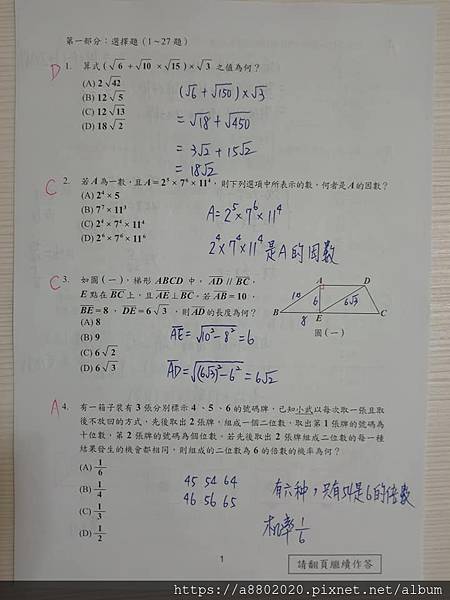 第一部分：選擇題（1～27題）
D 1. 算式(√6+√10×√15)×√3 之值為何？
(A) 2√42
(B) 12√5
(C) 12√13
(D) 18√2
(√6+√150)×√3
=√18+√450
=3√2+15√2
=18√2
C 2. 若A為一數，且A=2⁵×7⁶×11⁴，則下列選項中所表示的數，何者是A的因數？
(A) 2⁴×5
(B) 7⁷×11³
(C) 2⁴×7⁴×11⁴
(D) 2⁶×7⁶×11⁶
A=2⁵×7⁶×11⁴
2⁴×7⁴×11⁴是A的因數
C 3. 如圖(一)，梯形ABCD中，AD // BC，
E點在BC上，且AE⊥BC。若AB=10，
BE=8，DE=6√3，則AD的長度為何？
(A) 8
(B) 9
(C) 6√2
(D) 6√3
AE=√10²-8²=6
AD=√(6√3)²-6²=6√2
A D
10 6 6√3
B E C
8
圖(一)
A 4. 有一箱子裝有3張分別標示4、5、6的號碼牌，已知小武以每次取一張且取
後不放回的方式，先後取出2張牌，組成一個二位數，取出第1張牌的號碼為
十位數，第2張牌的號碼為個位數。若先後取出2張牌組成二位數的每一種
結果發生的機會都相同，則組成的二位數為6的倍數的機率為何？
(A) 1/6
(B) 1/4
(C) 1/3
(D) 1/2
45 54 64
46 56 65
有六种，只有54是6的倍數
机率1/6
1
請翻頁繼續作答
https://a8802020.pixnet.net/album